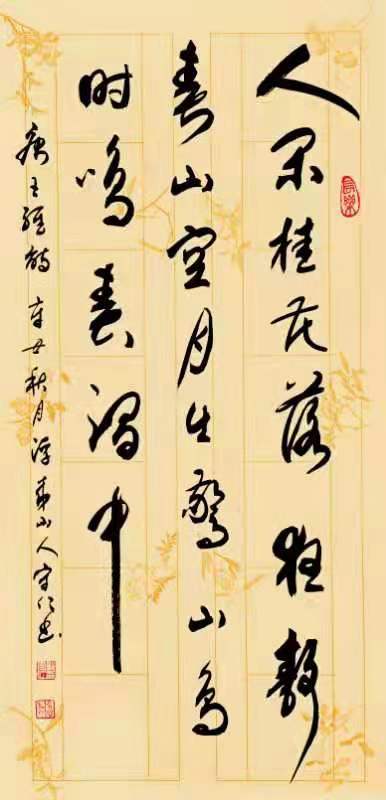 人闲桂花落夜静
春山空月出惊山鸟
时鸣春涧中
唐王维诗 辛丑秋月浮来山人守仁书